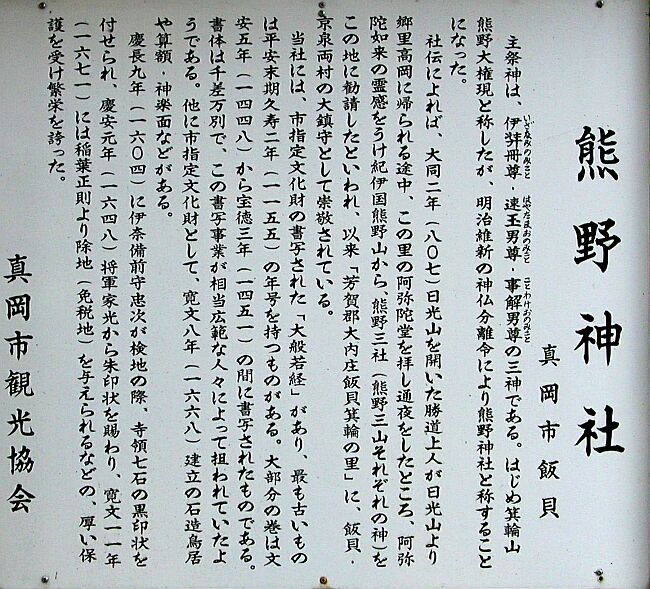 熊野神社
真岡市飯貝
主祭神は、伊弉冊尊・速玉男尊・事解男尊の三神である。はじめ箕輪山
いざなみのみこと はやたまおのみこと ことわけおのみこと
熊野大権現と称したが、明治維新の神仏分離令により熊野神社と称すること
になった。
社伝によれば、大同二年（八〇七）日光山を開いた勝道上人が日光山より
郷里高岡に帰られる途中、この里の阿弥陀堂を拝し通夜をしたところ、阿弥
陀如来の霊感をうけ紀伊国熊野山から、熊野三社（熊野三山それぞれの神）を
この地に勧請したといわれ、以来「芳賀郡大内庄飯貝箕輪の里」に、飯貝・
京泉両村の大鎮守として崇敬されている。
当社には、市指定文化財の書写された「大般若経」があり、最も古いもの
は平安末期久寿二年（一一五五）の年号を持つものがある。大部分の巻は文
安五年（一四四八）から宝徳三年（一四五一）の間に書写されたものである。
書体は千差万別で、この書写事業が相当広範な人々によって担われていたよ
うである。他に市指定文化財として、寛文八年（一六六八）建立の石造鳥居
や算額・神楽面などがある。
慶長九年（一六〇四）に伊奈備前守忠次が検地の際、寺領七石の黒印状を
付せられ、慶安元年（一六四八）将軍家光から朱印状を賜わり、寛文一一年
（一六七一）には稲葉正則より除地（免税地）を与えられるなどの、厚い保
護を受け繁栄を誇った。
真岡市観光協会